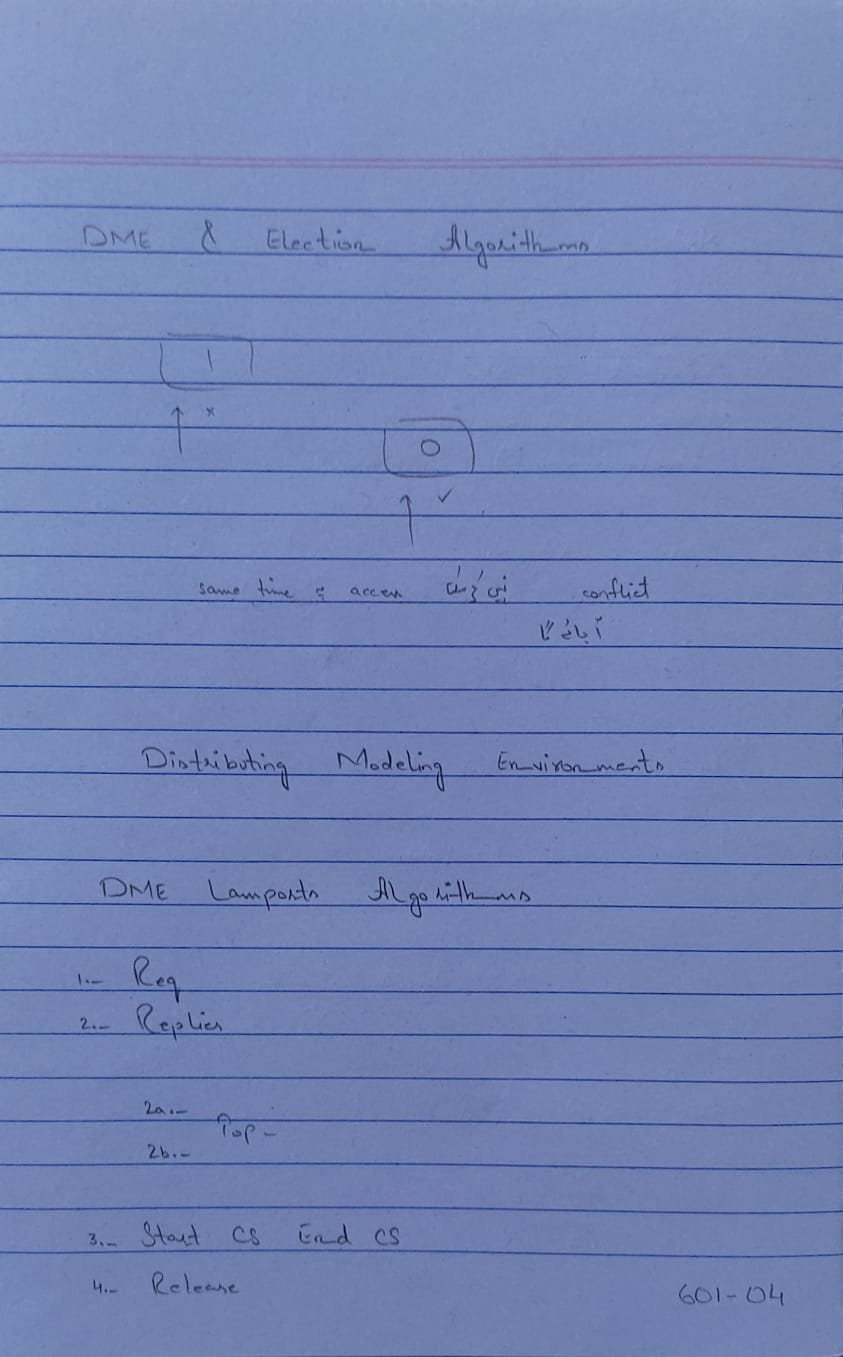 DME & Election Algorithms
1
×
0
✓
same time access conflict
Distributing Modeling Environments
DME Lamports Algorithms
1.- Req
2.- Replies
2a.-
Pop-
2b.-
3.- Start CS End CS
4.- Release
601-04